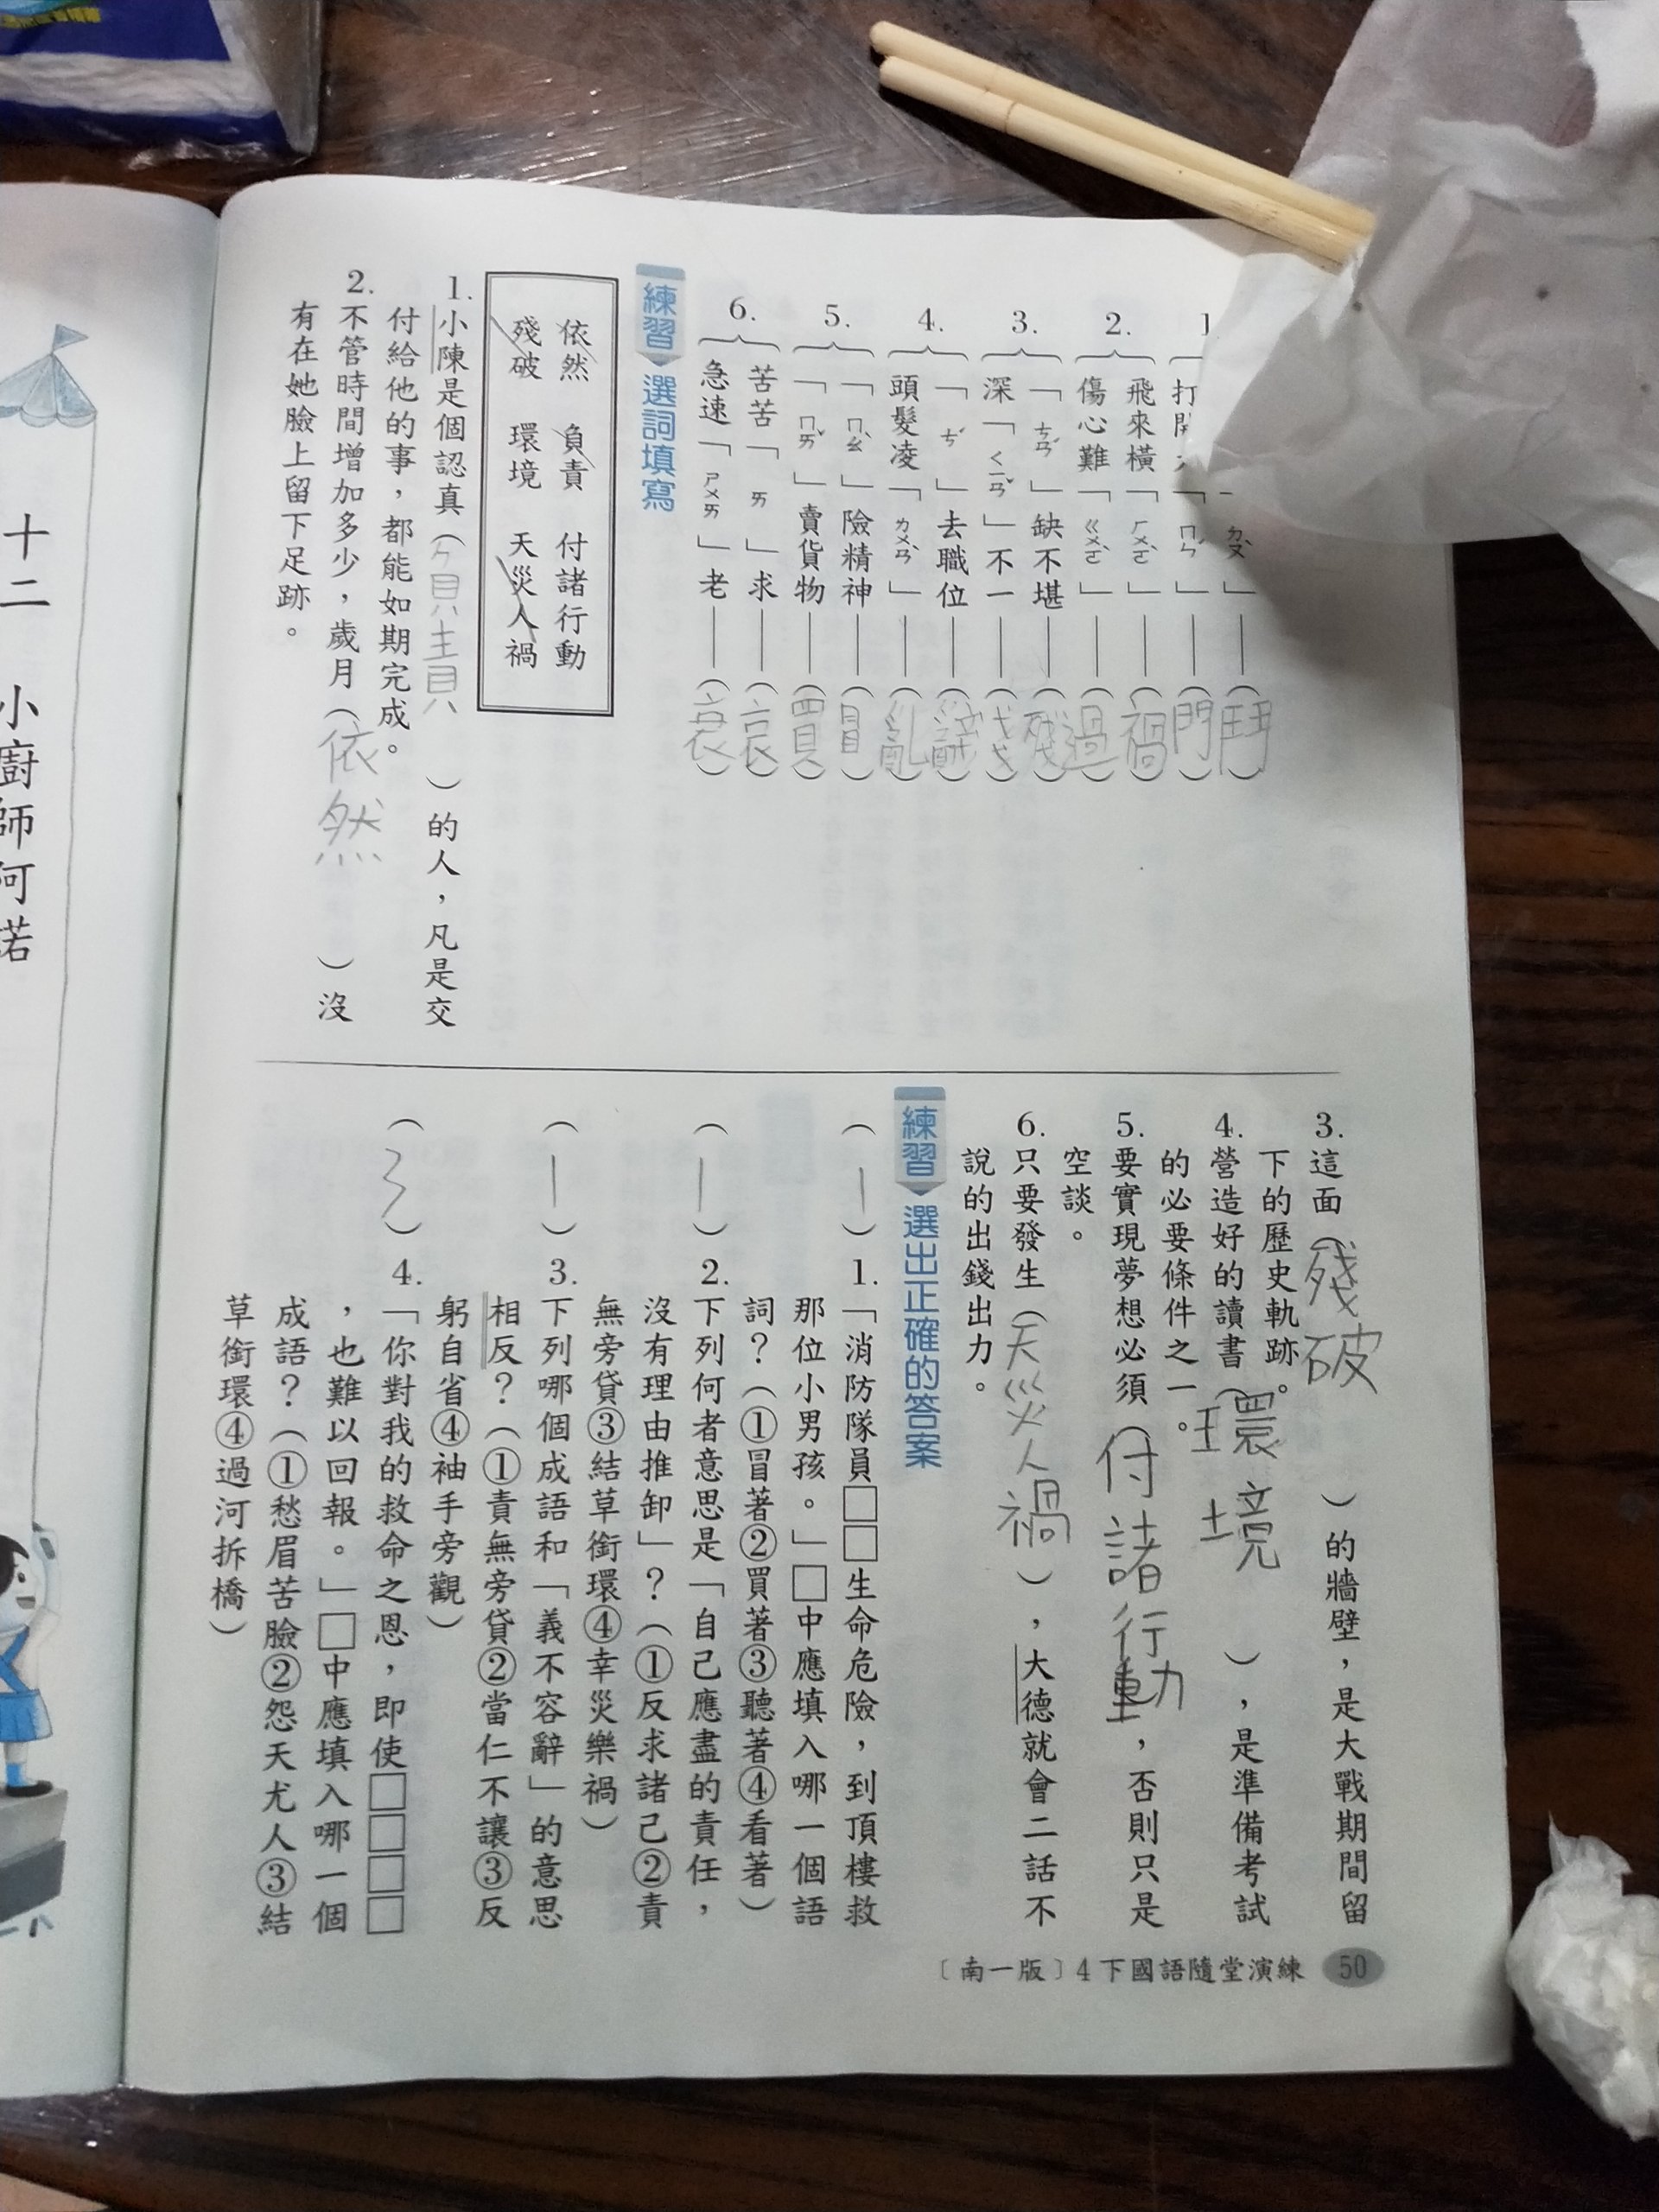 打開大「ㄇㄣˊ」——(門)
2.
飛來橫「ㄏㄨㄛˋ」——(禍)
傷心難「ㄍㄨㄛˋ」——(過)
3.
「ㄘㄢˊ」缺不堪——(殘)
深「ㄑㄧㄢˇ」不一——(淺)
4.
「ㄘˊ」去職位——(辭)
頭髮凌「ㄌㄨㄢˋ」——(亂)
5.
「ㄇㄠˋ」險精神——(冒)
「ㄇㄞˇ」賣貨物——(買)
6.
苦苦「ㄞ」求——(哀)
急速「ㄕㄨㄞ」老——(衰)
練習 選詞填寫
依然 負責 付諸行動
殘破 環境 天災人禍
1.小陳是個認真(負責)的人,凡是交
付給他的事,都能如期完成。
2.不管時間增加多少,歲月(依然)沒
有在她臉上留下足跡。
3.這面(殘破)的牆壁,是大戰期間留
下的歷史軌跡。
4.營造好的讀書(環境),是準備考試
的必要條件之一。
5.要實現夢想必須(付諸行動,否則只是
空談。
6.只要發生(天災人禍),大德就會二話不
說的出錢出力。
練習 選出正確的答案
(一)1.「消防隊員□□生命危險,到頂樓救
那位小男孩。」□中應填入哪一個語
詞?(①冒著②買著③聽著④看著)
(一)2.下列何者意思是「自己應盡的責任,
沒有理由推卸」?(①反求諸己②責
無旁貸③結草銜環④幸災樂禍)
(一)3.下列哪個成語和「義不容辭」的意思
相反?(①責無旁貸②當仁不讓③反
躬自省④袖手旁觀)
(ㄋ)4.「你對我的救命之恩,即使□□□□
,也難以回報。」□中應填入哪一個
成語?(①愁眉苦臉②怨天尤人③結
草銜環④過河拆橋)
〔南一版〕4下國語隨堂演練 50
十二 小廚師阿諾